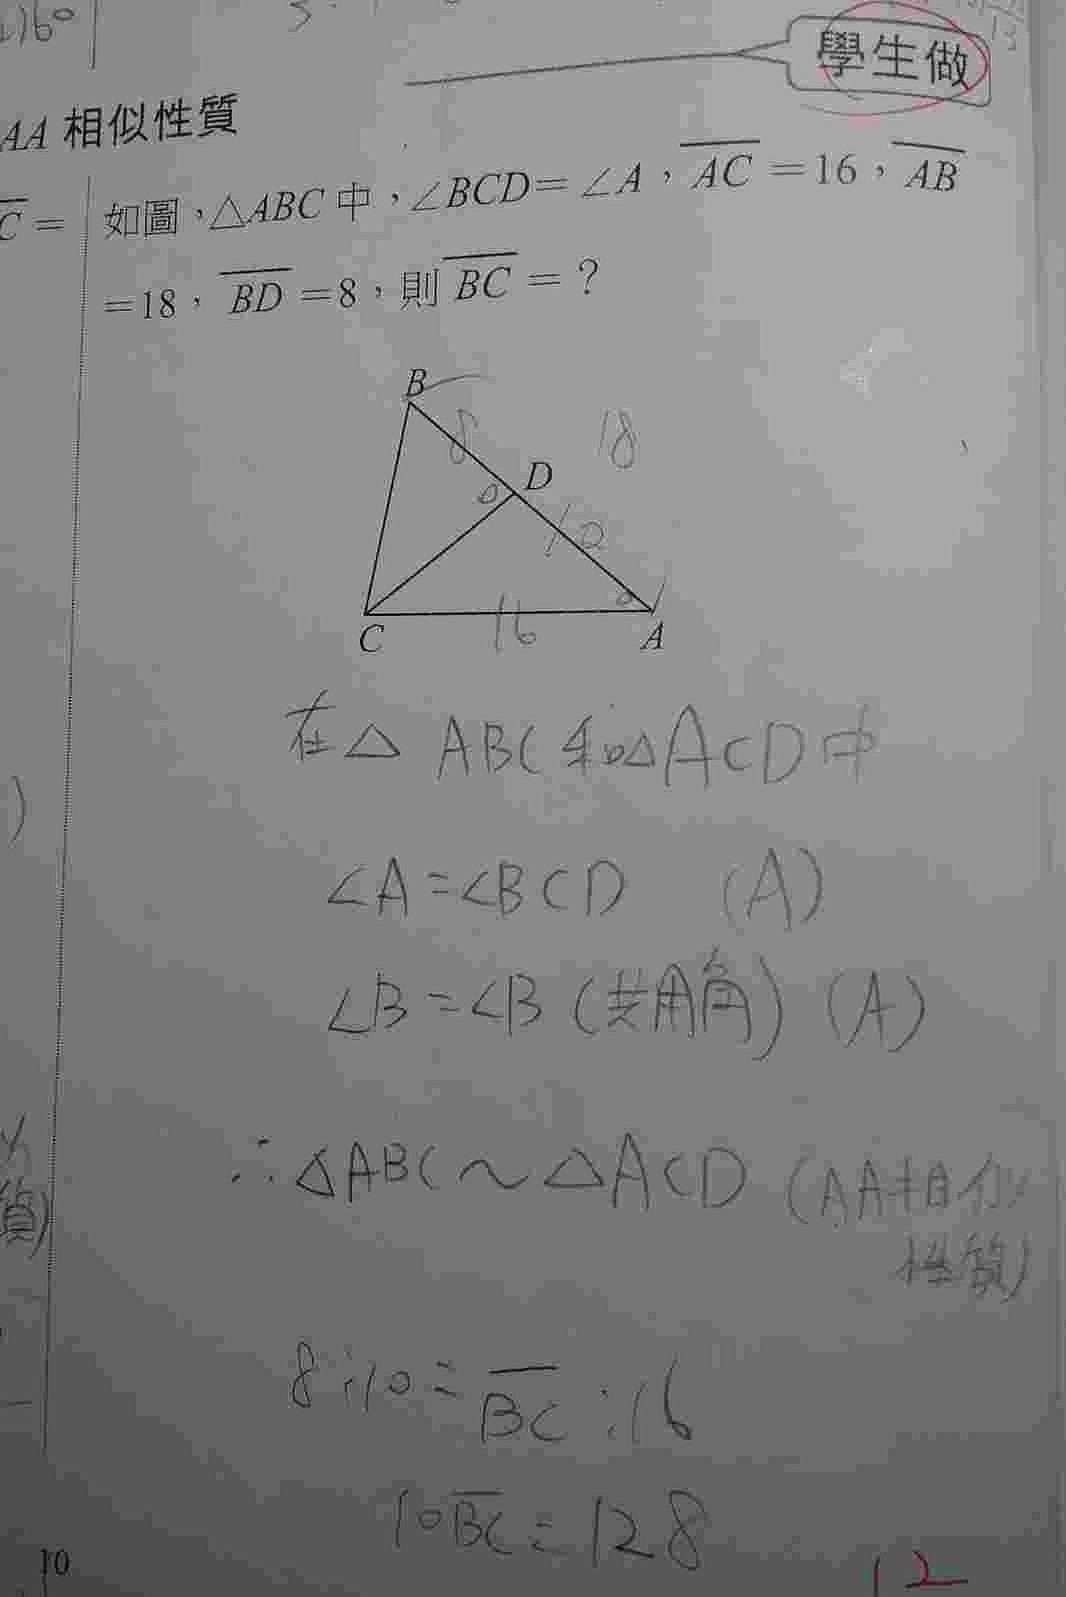 160°
學生做
AA 相似性質
C =
如圖，△ABC 中，∠BCD=∠A，AC =16，AB
=18，BD =8，則 BC = ?
B
8
18
D
10
16
C
A
在△ ABC 和△ACD中
∠A=∠BCD (A)
∠B=∠B (共用角) (A)
∴△ABC～△ACD (AA相似
性質)
質)
8:10=BC:16
10BC=128
10
12